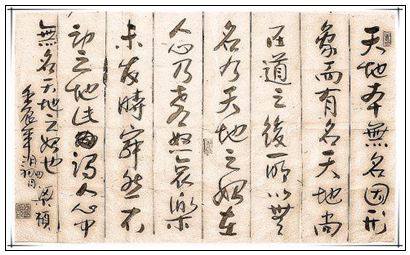 天地本無名因形
象而有名天地尚
道之後所以無
名乃天地之始在
人心乃喜怒哀樂
未發時寂然不
動之地此謂人心中
無名天地之始也
壬辰年